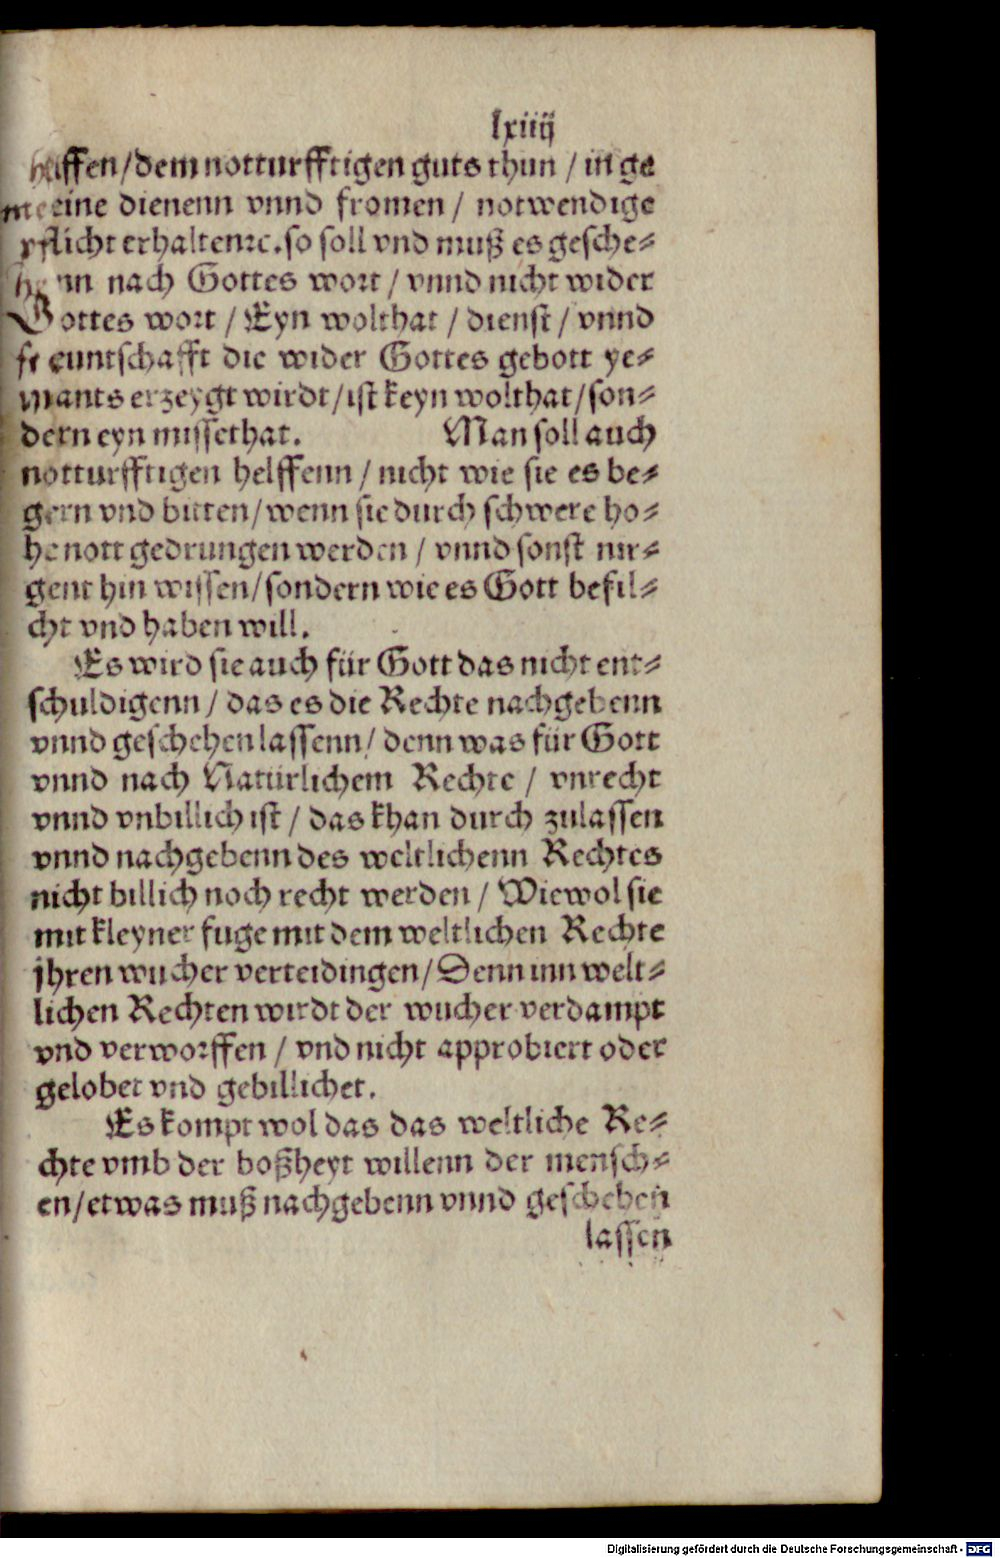 lxiiij
helffen/dem notturfftigen guts thun / in ge
meeine dienenn vnnd fromen / notwendige
pflicht erhalten ꝛc. so soll vnd muß es gesche⸗
henn nach Gottes wort / vnnd nicht wider
Gottes wort / Eyn wolthat / dienst / vnnd
freuntschafft die wider Gottes gebott ye⸗
mants erzeygt wirdt/ist keyn wolthat/son⸗
dern eyn missethat. Man soll auch
notturfftigen helffenn / nicht wie sie es be⸗
gern vnd bitten/wenn sie durch schwere ho⸗
he nott gedrungen werden / vnnd sonst nir⸗
gent hin wissen/sondern wie es Gott befil⸗
cht vnd haben will.
Es wird sie auch für Gott das nicht ent⸗
schuldigenn / das es die Rechte nachgebenn
vnnd geschehen lassenn/ denn was für Gott
vnnd nach Natürlichem Rechte / vnrecht
vnnd vnbillich ist / das khan durch zulassen
vnnd nachgebenn des weltlichenn Rechtes
nicht billich noch recht werden / Wiewol sie
mit kleyner fuge mit dem weltlichen Rechte
jhren wucher verteidingen/Denn inn welt⸗
lichen Rechten wirdt der wucher verdampt
vnd verworffen / vnd nicht approbiert oder
gelobet vnd gebillichet.
Es kompt wol das das weltliche Re⸗
chte vmb der boßheyt willenn der mensch⸗
en/etwas muß nachgebenn vnnd geschehen
lassen
Digitalisierung gefördert durch die Deutsche Forschungsgemeinschaft - DFG